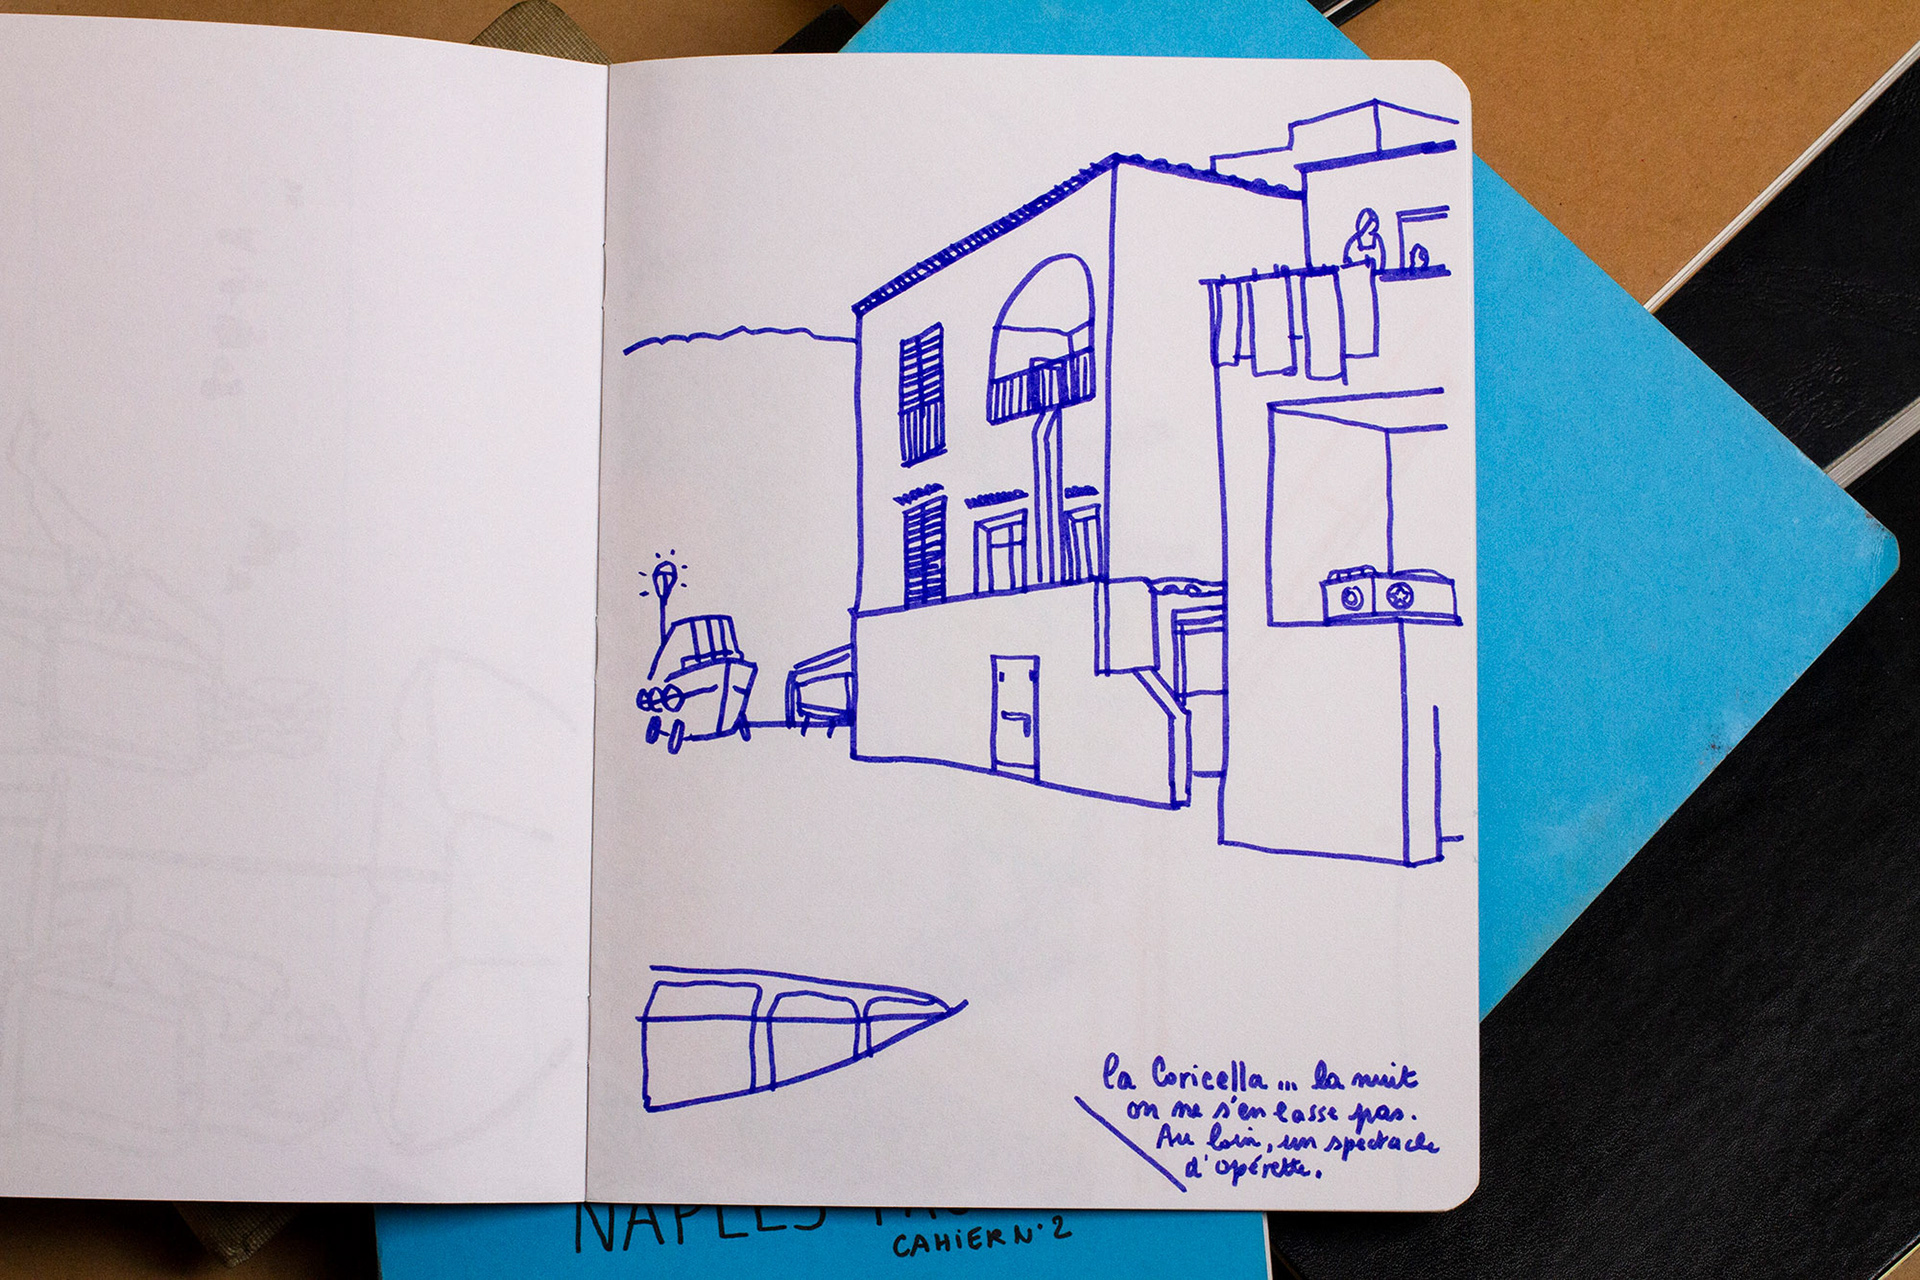 la Coricella ... la nuit
on ne s'en lasse pas.
Au loin, un spectacle
d'opérette.
NAPLES
CAHIER N°2